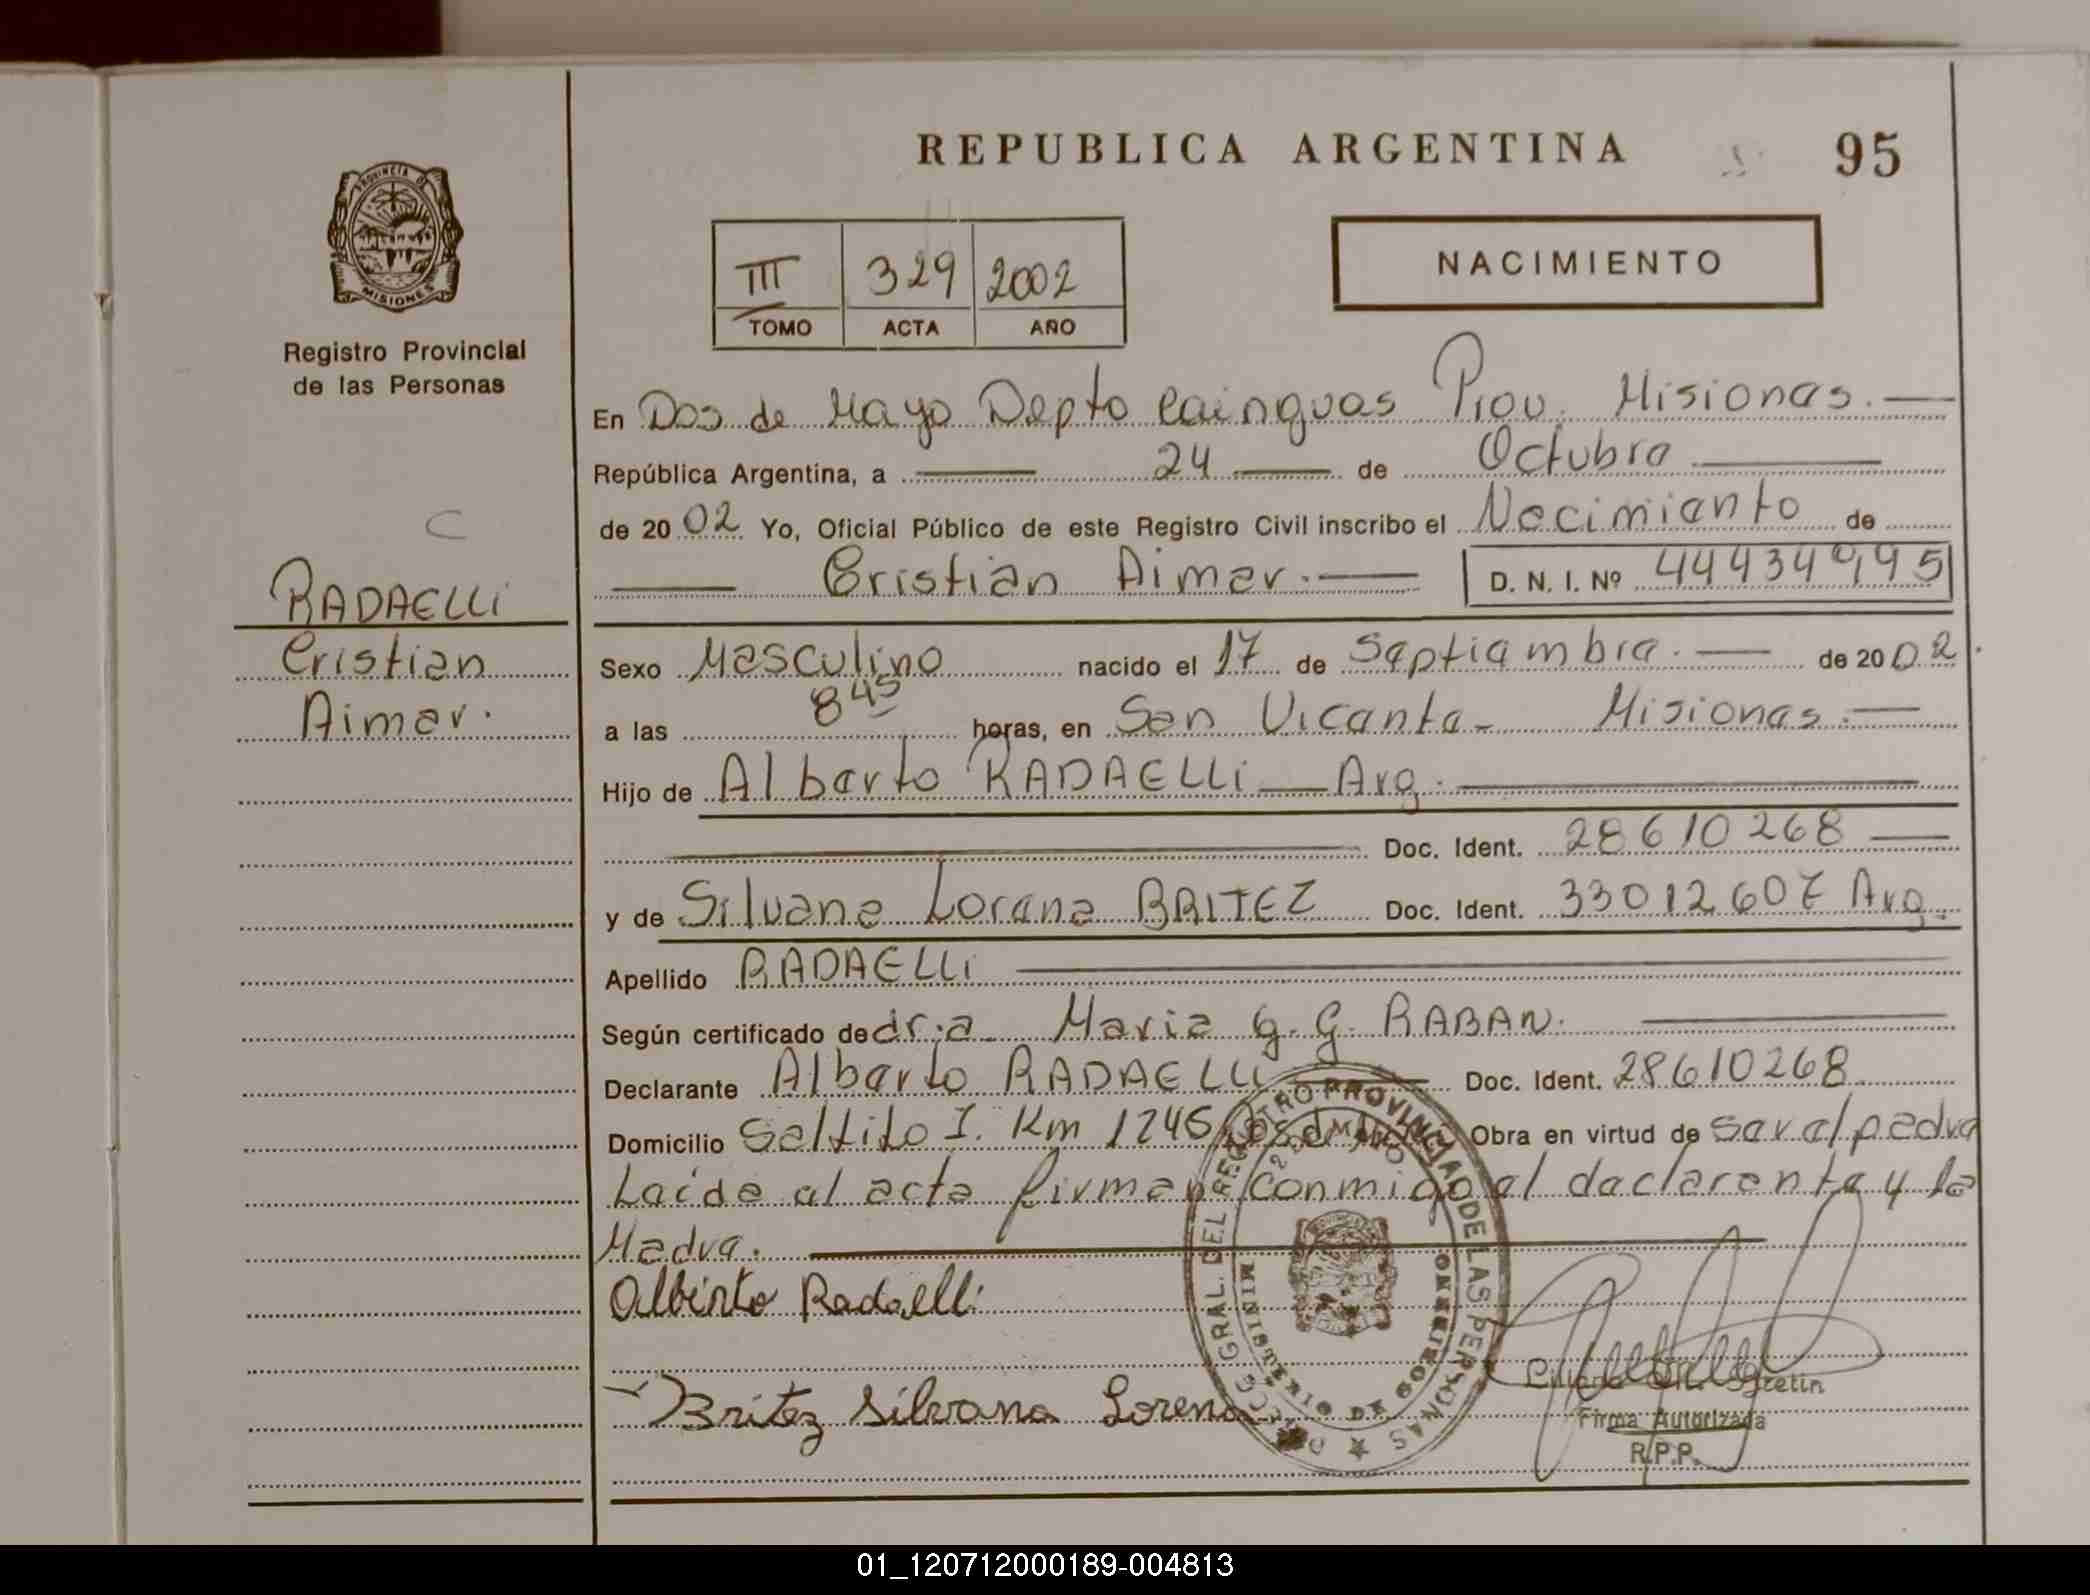 REPUBLICA ARGENTINA
95
PROVINCIA DE
MISIONES
Registro Provincial
de las Personas
III 329 2002
TOMO ACTA AÑO
NACIMIENTO
En Dos de Mayo Depto Cainguas Prov. Misiones.
República Argentina, a 24 de Octubre
de 2002 Yo, Oficial Público de este Registro Civil inscribo el Nacimiento de
Cristian Aimar. D. N. I. Nº 44434995
RADAELLi
Cristian
Aimar.
Sexo Masculino nacido el 17 de Septiembre. de 2002.
a las 8 45 horas, en San Vicente - Misiones.
Hijo de Alberto RADAELLi Arg.
Doc. Ident. 28610268
y de Silvana Lorena BRITEZ Doc. Ident. 33012607 Arg.
Apellido RADAELLi
Según certificado de dr.a Maria G. G. RABAN.
Declarante Alberto RADAELLi Doc. Ident. 28610268
Domicilio Saltito I. Km 1246 Obra en virtud de ser el padre
Leída el acta firman conmigo el declarante y la
Madre.
Alberto Radaelli
Britez Silvana Lorena
DIRECC. GRAL. DEL REGISTRO PROVINCIAL DE LAS PERSONAS
MINISTERIO DE GOBIERNO
2 DE MAYO
Firma Autorizada
R.P.P.
01_120712000189-004813